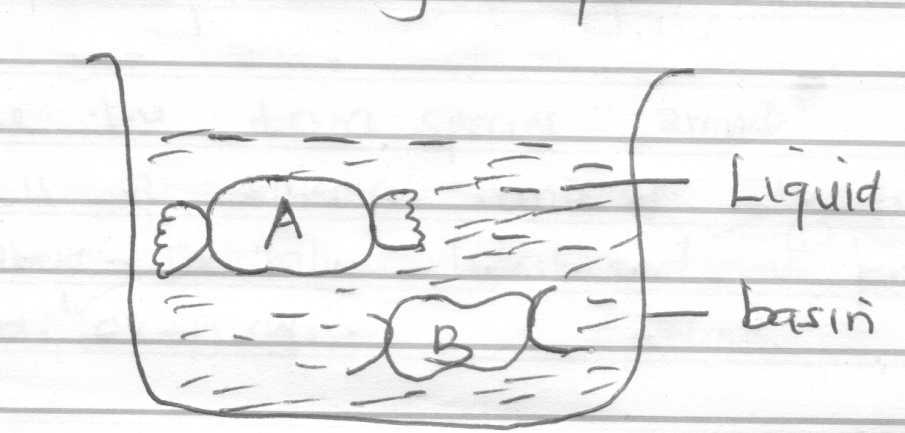 A
Liquid
basin
B